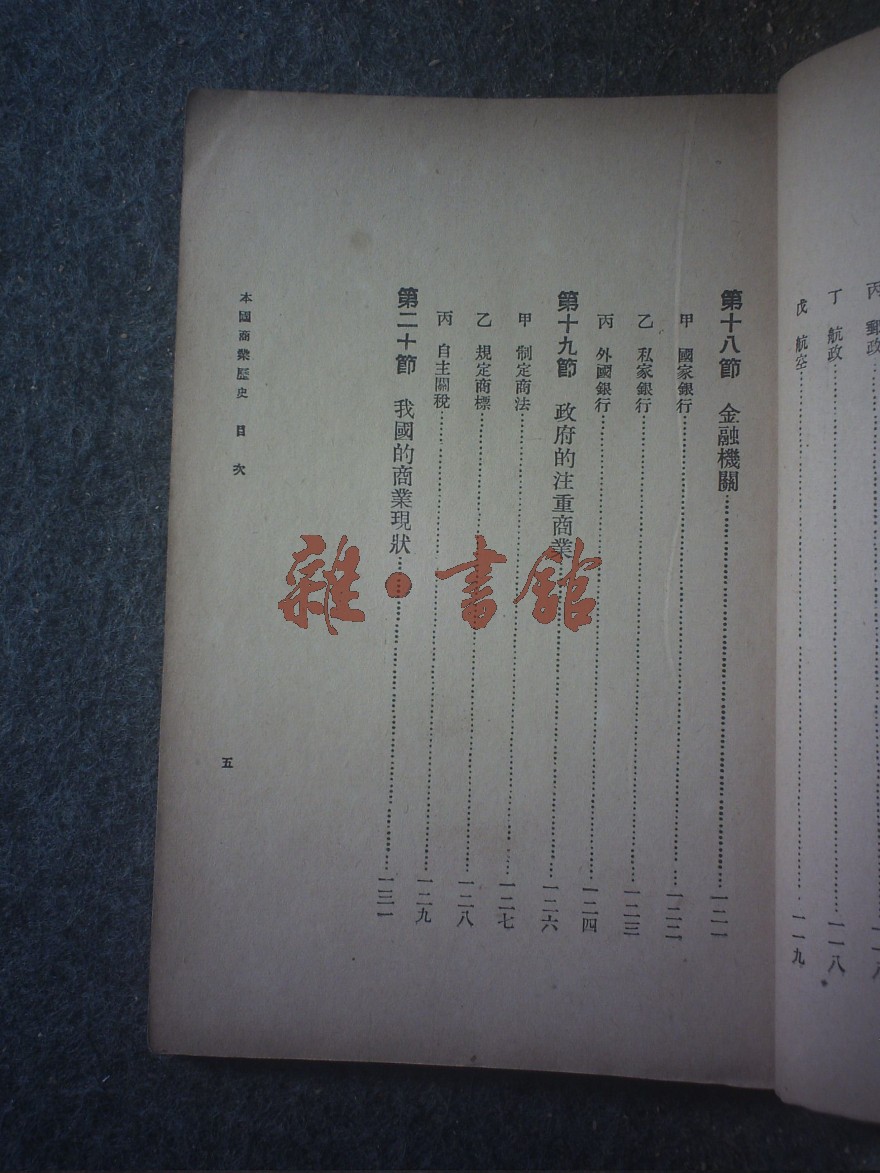 丙　郵政
丁　航政……一一八
戊　航空……一一九
第十八節　金融機關……一二一
甲　國家銀行……一二二
乙　私家銀行……一二三
丙　外國銀行……一二四
第十九節　政府的注重商業……一二六
甲　制定商法……一二七
乙　規定商標……一二八
丙　自主關稅……一二九
第二十節　我國的商業現狀……一三一
本國商業歷史　目次
五
雜·書館